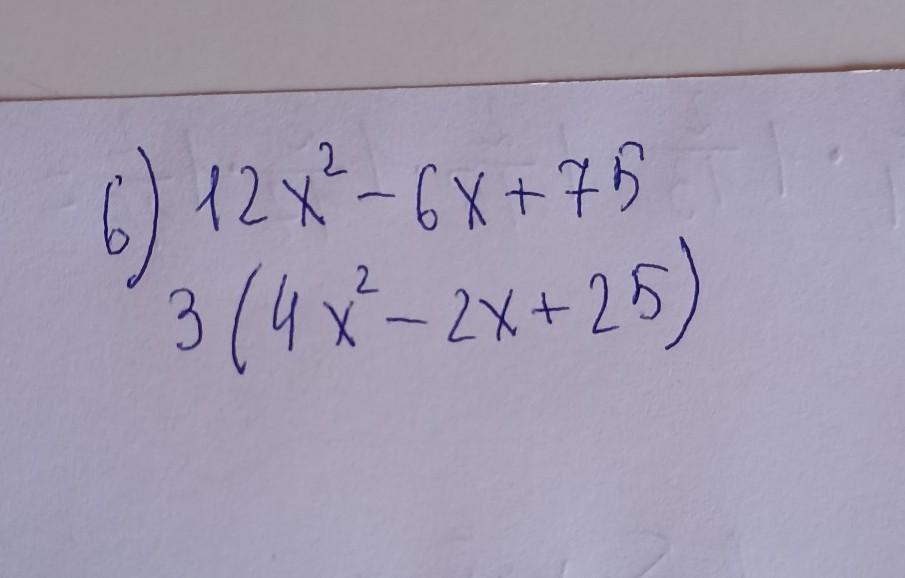 б) 12x² - 6x + 75
3 (4x² - 2x + 25)